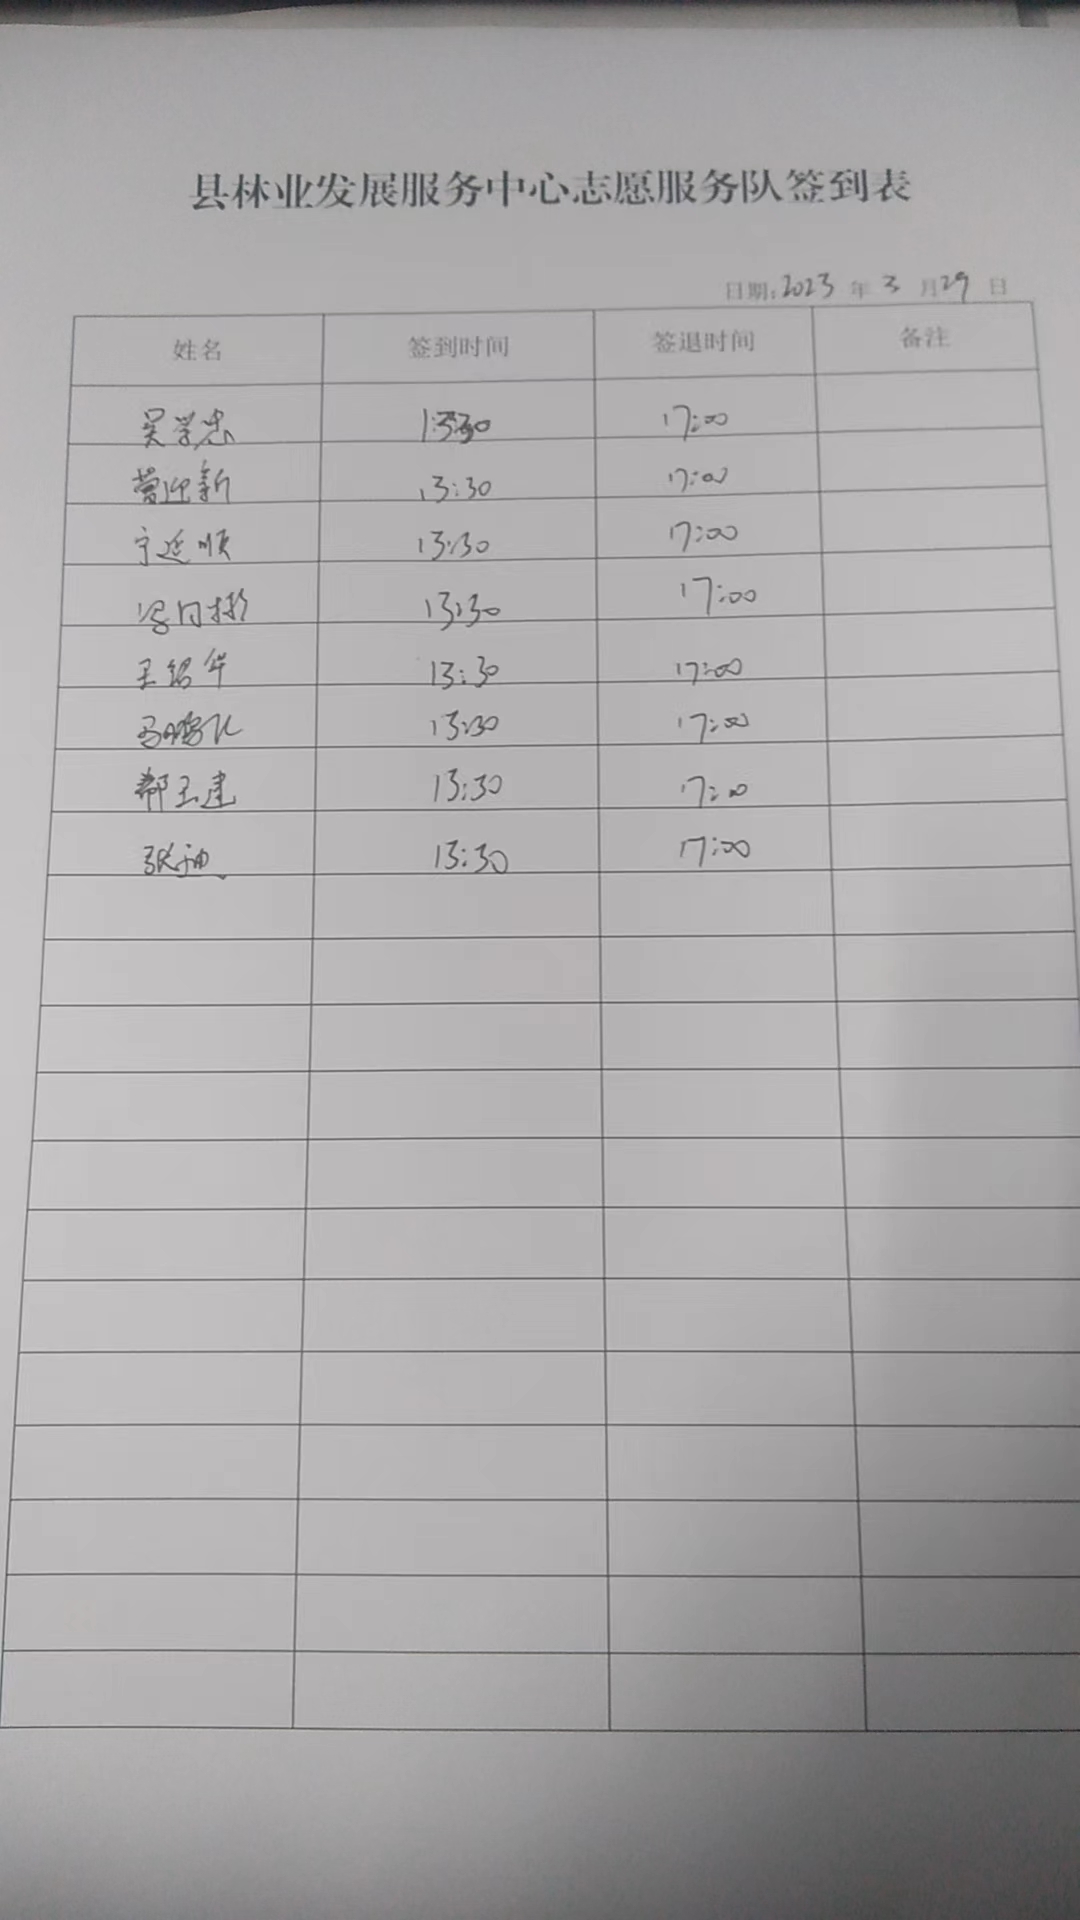 县林业发展服务中心志愿服务队签到表
日期:2023 年 3 月29 日
姓名 签到时间 签退时间 备注
吴学忠 13:30 17:00
营迎新 13:30 17:00
宁延顺 13:30 17:00
13:30 17:00
王绍华 13:30 17:00
马鹏飞 13:30 17:00
郗玉建 13:30 17:00
张迪 13:30 17:00